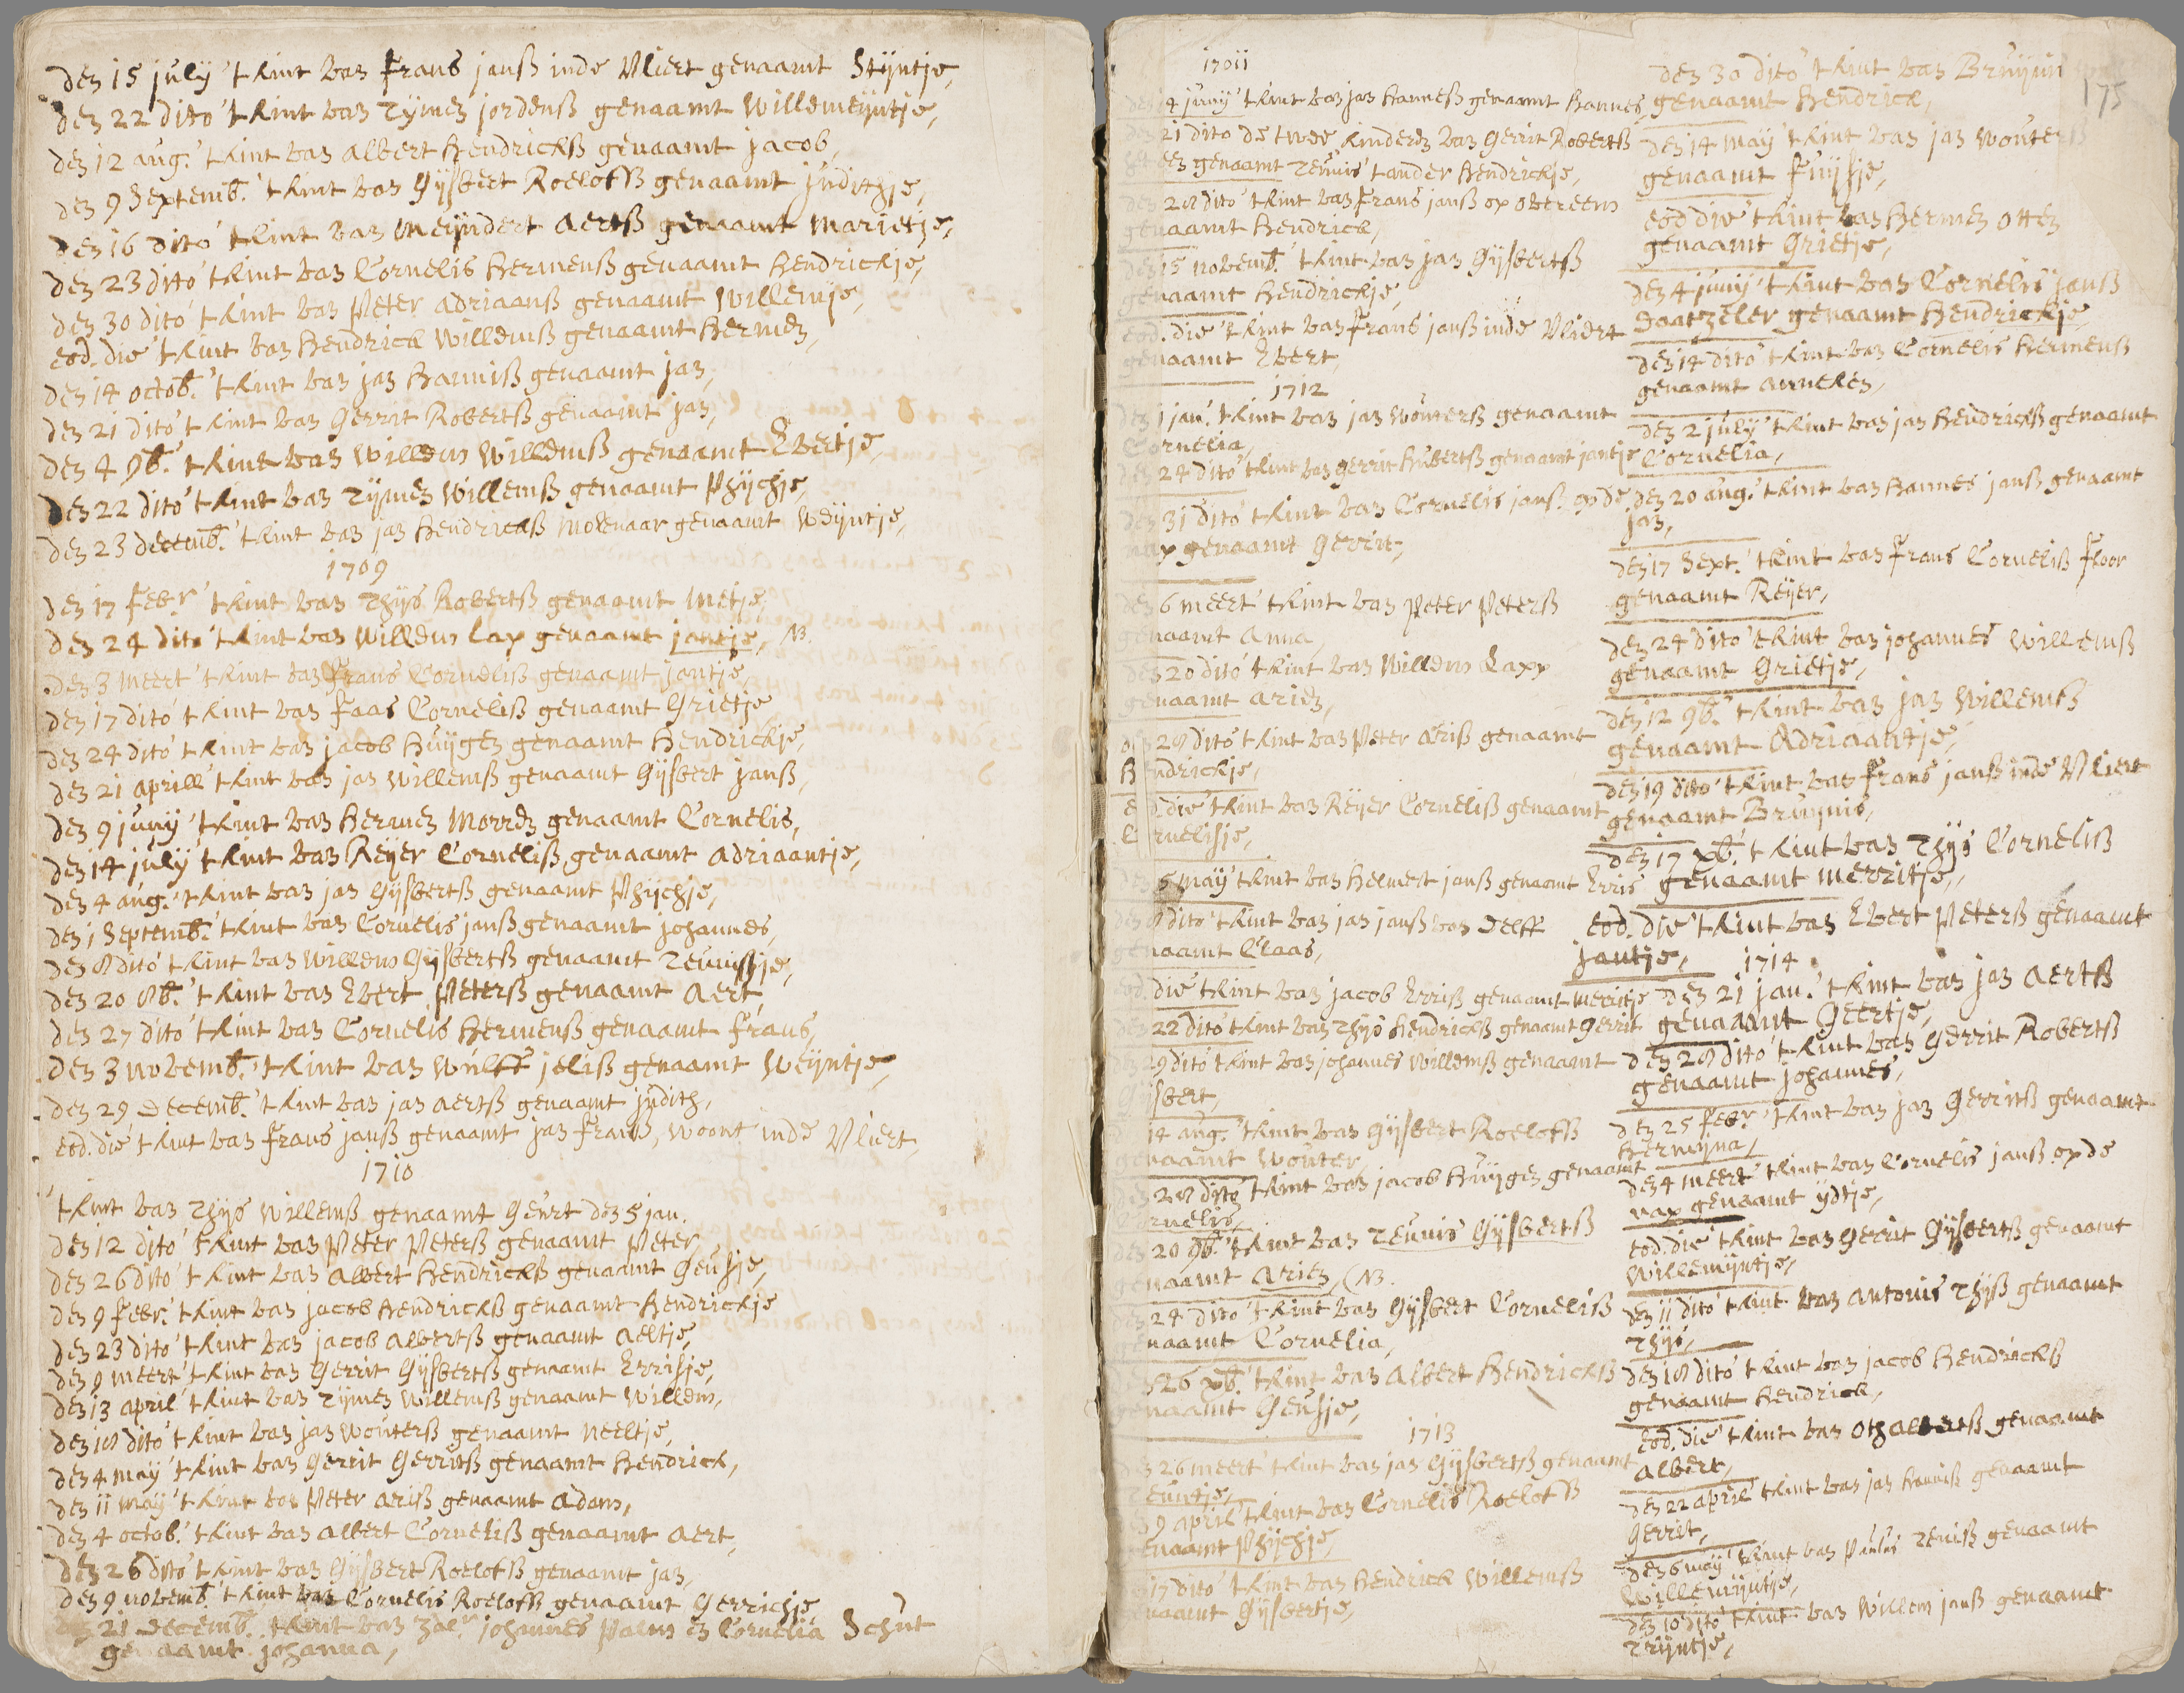 den 15 july 't kint van frans janß inde vliert genaamt Stijntje,
den 22 dito 't kint van Tymen jordenß genaamt willemeyntje,
den 12 aug. 't kint van albert hendrickß genaamt jacob,
den 9 Septemb. 't kint van Gijsbert Roelofß genaamt judithje,
den 16 dito 't kint van meijndert aertß genaamt marietje,
den 23 dito 't kint van Cornelis hermenß genaamt hendrickje,
den 30 dito 't kint van Peter adriaanß genaamt willemje,
eod. die 't kint van hendrick willemß genaamt hermen,
den 14 octob. 't kint van jan harmiß genaamt jan,
den 21 dito 't kint van Gerrit Robertß genaamt jan,
den 4 9b. 't kint van willem willemß genaamt Evertje,
den 22 dito 't kint van Tijmen willemß genaamt Phijchje,
den 23 decemb. 't kint van jan hendrickß molenaar genaamt Weijntje,
1709
den 17 febr 't kint van Thijs Robertß genaamt metje,
den 24 dito 't kint van willem lap genaamt jantje, NB.
den 3 meert 't kint van frans Corneliß genaamt jantje,
den 17 dito 't kint van faas Corneliß genaamt Grietje
den 24 dito 't kint van jacob huijgen genaamt hendrickje,
den 21 aprill 't kint van jan willemß genaamt Gijsbert janß,
den 9 junij 't kint van hermen morren genaamt Cornelis,
den 14 july 't kint van Reyer Corneliß genaamt adriaantje,
den 4 aug. 't kint van jan Gijsbertß genaamt Phijchje,
den 1 Septemb. 't kint van Cornelis janß genaamt johannes,
den 8 dito 't kint van willem Gijsbertß genaamt Teunisje,
den 20 8b. 't kint van Evert Peterß genaamt aert
den 27 dito 't kint van Cornelis hermenß genaamt frans,
den 3 novemb. 't kint van wulff jeliß genaamt Weijntje,
den 29 Decemb. 't kint van jan aertß genaamt judith,
eod. die 't kint van frans janß genaamt jan franß, woont inde vliert,
1710
't kint van Thijs willemß genaamt Geurt den 5 jan.
den 12 dito 't kint van Peter Peterß genaamt Peter,
den 26 dito 't kint van albert hendrickß genaamt Geusje,
den 9 febr. 't kint van jacob hendrickß genaamt hendrickje
den 23 dito 't kint van jacob albertß genaamt aeltje,
den 9 meert 't kint van Gerrit Gijsbertß genaamt Errisje,
den 13 april 't kint van Tijmen willemß genaamt willem,
den 18 dito 't kint van jan wouterß genaamt neeltje,
den 4 may 't kint van Gerrit Gerritß genaamt hendrick,
den 11 may 't kint van Peter ariß genaamt adam,
den 4 octob. 't kint van albert Corneliß genaamt aert,
den 26 dito 't kint van Gijsbert Roelofß genaamt jan,
den 9 novemb. 't kint van Cornelis Roelofß genaamt Gerrichje,
21 Decemb. 't kint van zal. johannes Palm en Cornelia Schut
genaamt johanna,
1711
14 junij 't kint van jan hannesß genaamt hannes,
21 dito de twee kinderen van Gerrit Robertß
een genaamt Teunis 't ander hendrickje,
28 dito 't kint van frans janß op overeem
genaamt hendrick,
den 15 novemb. 't kint van jan Gijsbertß
genaamt hendrickje,
eod. die 't kint van frans janß inde vliert
genaamt Evert,
1712
den 1 jan. 't kint van jan wouterß genaamt
Cornelia,
24 dito 't kint van gerrit hubertß genaamt jantje
31 dito 't kint van Cornelis janß op de
nap genaamt Gerrit,
den 6 meert 't kint van Peter Peterß
genaamt anna,
den 20 dito 't kint van willem Lapp
genaamt arien,
28 dito 't kint van Peter ariß genaamt
hendrickje,
eod die 't kint van Reyer Corneliß genaamt
Cornelisje,
5 may 't kint van helmert janß genaamt Erris
den 8 dito 't kint van jan janß van Delff
genaamt Claas,
eod. die 't kint van jacob Erriß genaamt merritje
22 dito 't kint van Thijs hendrickß genaamt Gerrit
29 dito 't kint van johannes willemß genaamt
Gijsbert,
14 aug. 't kint van Gijsbert Roelofß
genaamt wouter,
28 dito 't kint van jacob huijgen genaamt
Cornelis,
20 9b. 't kint van Teunis Gijsbertß
genaamt Arien, (NB.
24 dito 't kint van Gijsbert Corneliß
genaamt Cornelia,
26 xb. 't kint van albert hendrickß
genaamt Geusje,
1713
26 meert 't kint van jan Gijsbertß genaamt
Teuntje,
9 april 't kint van Cornelis Roelofß
genaamt Phijchje,
17 dito 't kint van hendrick willemß
genaamt Gijsbertje,
175
den 30 dito 't kint van Bruijn
genaamt hendrick,
den 14 may 't kint van jan wouterß
genaamt fuijsje,
eod die 't kint van hermen otten
genaamt Grietje,
den 4 junij 't kint van Cornelis janß
Daatzeler genaamt hendrickje,
den 14 dito 't kint van Cornelis hermenß
genaamt anneken,
den 2 july 't kint van jan hendrickß genaamt
Cornelia,
den 20 aug. 't kint van hannes janß genaamt
jan,
den 17 Sept. 't kint van frans Corneliß floor
genaamt Reijer,
den 24 dito 't kint van johannes willemß
genaamt Grietje,
den 12 9b. 't kint van jan willemß
genaamt Adriaantje,
den 19 dito 't kint van frans janß inde vliert
genaamt Bruynis,
den 17 xb. 't kint van Thijs Corneliß
genaamt merritje,
eod. die 't kint van Evert Peterß genaamt
jantje,
1714
den 21 jan. 't kint van jan aertß
genaamt Geertje,
den 28 dito 't kint van Gerrit Robertß
genaamt johannes,
den 25 febr 't kint van jan Gerritß genaamt
hermijna,
den 4 meert 't kint van Cornelis janß op de
nap genaamt ijdtje,
eod. die 't kint van Gerrit Gijsbertß genaamt
willemijntje,
den 11 dito 't kint van antonis Thijß genaamt
Thijs,
den 18 dito 't kint van jacob hendrickß
genaamt hendrick,
eod. die 't kint van oth albertß genaamt
albert,
den 22 april 't kint van jan harmß genaamt
Gerrit,
den 6 may 't kint van Paulus Teuniß genaamt
willemijntje,
den 10 dito 't kint van willem janß genaamt
Trijntje,